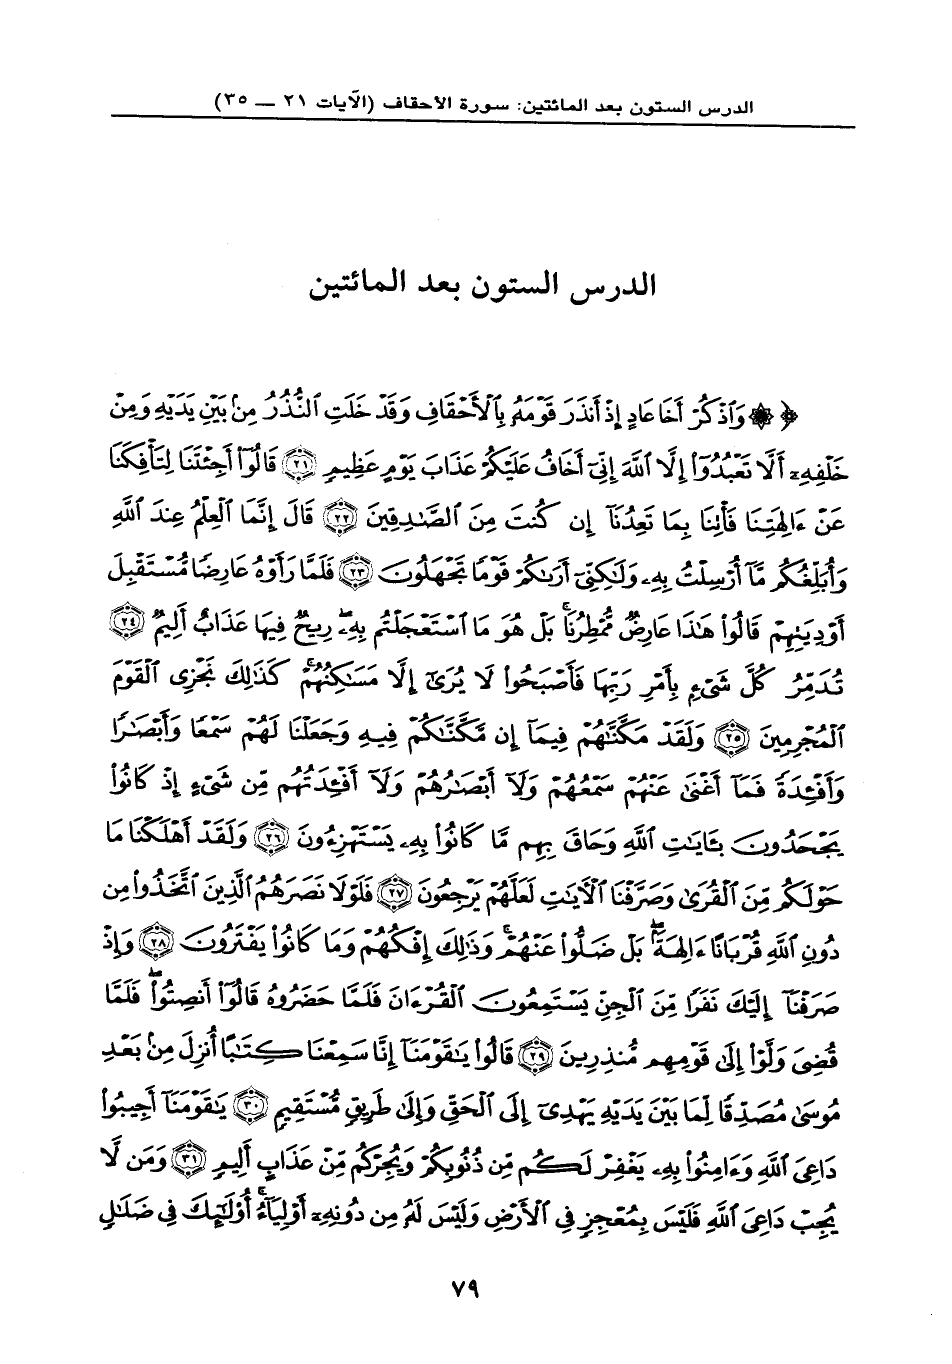 الدرس الستون بعد المائتين: سورة الأحقاف (الآيات ٢١ — ٣٥)
الدرس الستون بعد المائتين
﴿ ۞ وَٱذۡكُرۡ أَخَا عَادٍ إِذۡ أَنذَرَ قَوۡمَهُۥ بِٱلۡأَحۡقَافِ وَقَدۡ خَلَتِ ٱلنُّذُرُ مِنۢ بَيۡنِ يَدَيۡهِ وَمِنۡ
خَلۡفِهِۦٓ أَلَّا تَعۡبُدُوٓاْ إِلَّا ٱللَّهَ إِنِّيٓ أَخَافُ عَلَيۡكُمۡ عَذَابَ يَوۡمٍ عَظِيمٖ ٢١ قَالُوٓاْ أَجِئۡتَنَا لِتَأۡفِكَنَا
عَنۡ ءَالِهَتِنَا فَأۡتِنَا بِمَا تَعِدُنَآ إِن كُنتَ مِنَ ٱلصَّٰدِقِينَ ٢٢ قَالَ إِنَّمَا ٱلۡعِلۡمُ عِندَ ٱللَّهِ
وَأُبَلِّغُكُم مَّآ أُرۡسِلۡتُ بِهِۦ وَلَٰكِنِّيٓ أَرَىٰكُمۡ قَوۡمٗا تَجۡهَلُونَ ٢٣ فَلَمَّا رَأَوۡهُ عَارِضٗا مُّسۡتَقۡبِلَ
أَوۡدِيَتِهِمۡ قَالُواْ هَٰذَا عَارِضٞ مُّمۡطِرُنَاۚ بَلۡ هُوَ مَا ٱسۡتَعۡجَلۡتُم بِهِۦۖ رِيحٞ فِيهَا عَذَابٌ أَلِيمٞ ٢٤
تُدَمِّرُ كُلَّ شَيۡءِۭ بِأَمۡرِ رَبِّهَا فَأَصۡبَحُواْ لَا يُرَىٰٓ إِلَّا مَسَٰكِنُهُمۡۚ كَذَٰلِكَ نَجۡزِي ٱلۡقَوۡمَ
ٱلۡمُجۡرِمِينَ ٢٥ وَلَقَدۡ مَكَّنَّٰهُمۡ فِيمَآ إِن مَّكَّنَّٰكُمۡ فِيهِ وَجَعَلۡنَا لَهُمۡ سَمۡعٗا وَأَبۡصَٰرٗا
وَأَفۡـِٔدَةٗ فَمَآ أَغۡنَىٰ عَنۡهُمۡ سَمۡعُهُمۡ وَلَآ أَبۡصَٰرُهُمۡ وَلَآ أَفۡـِٔدَتُهُم مِّن شَيۡءٍ إِذۡ كَانُواْ
يَجۡحَدُونَ بِـَٔايَٰتِ ٱللَّهِ وَحَاقَ بِهِم مَّا كَانُواْ بِهِۦ يَسۡتَهۡزِءُونَ ٢٦ وَلَقَدۡ أَهۡلَكۡنَا مَا
حَوۡلَكُم مِّنَ ٱلۡقُرَىٰ وَصَرَّفۡنَا ٱلۡأٓيَٰتِ لَعَلَّهُمۡ يَرۡجِعُونَ ٢٧ فَلَوۡلَا نَصَرَهُمُ ٱلَّذِينَ ٱتَّخَذُواْ مِن
دُونِ ٱللَّهِ قُرۡبَانًا ءَالِهَةَۢۖ بَلۡ ضَلُّواْ عَنۡهُمۡۚ وَذَٰلِكَ إِفۡكُهُمۡ وَمَا كَانُواْ يَفۡتَرُونَ ٢٨ وَإِذۡ
صَرَفۡنَآ إِلَيۡكَ نَفَرٗا مِّنَ ٱلۡجِنِّ يَسۡتَمِعُونَ ٱلۡقُرۡءَانَ فَلَمَّا حَضَرُوهُ قَالُوٓاْ أَنصِتُواْۖ فَلَمَّا
قُضِيَ وَلَّوۡاْ إِلَىٰ قَوۡمِهِم مُّنذِرِينَ ٢٩ قَالُواْ يَٰقَوۡمَنَآ إِنَّا سَمِعۡنَا كِتَٰبًا أُنزِلَ مِنۢ بَعۡدِ
مُوسَىٰ مُصَدِّقٗا لِّمَا بَيۡنَ يَدَيۡهِ يَهۡدِيٓ إِلَى ٱلۡحَقِّ وَإِلَىٰ طَرِيقٖ مُّسۡتَقِيمٖ ٣٠ يَٰقَوۡمَنَآ أَجِيبُواْ
دَاعِيَ ٱللَّهِ وَءَامِنُواْ بِهِۦ يَغۡفِرۡ لَكُم مِّن ذُنُوبِكُمۡ وَيُجِرۡكُم مِّنۡ عَذَابٍ أَلِيمٖ ٣١ وَمَن لَّا
يُجِبۡ دَاعِيَ ٱللَّهِ فَلَيۡسَ بِمُعۡجِزٖ فِي ٱلۡأَرۡضِ وَلَيۡسَ لَهُۥ مِن دُونِهِۦٓ أَوۡلِيَآءُۚ أُوْلَٰٓئِكَ فِي ضَلَٰلٖ
٧٩